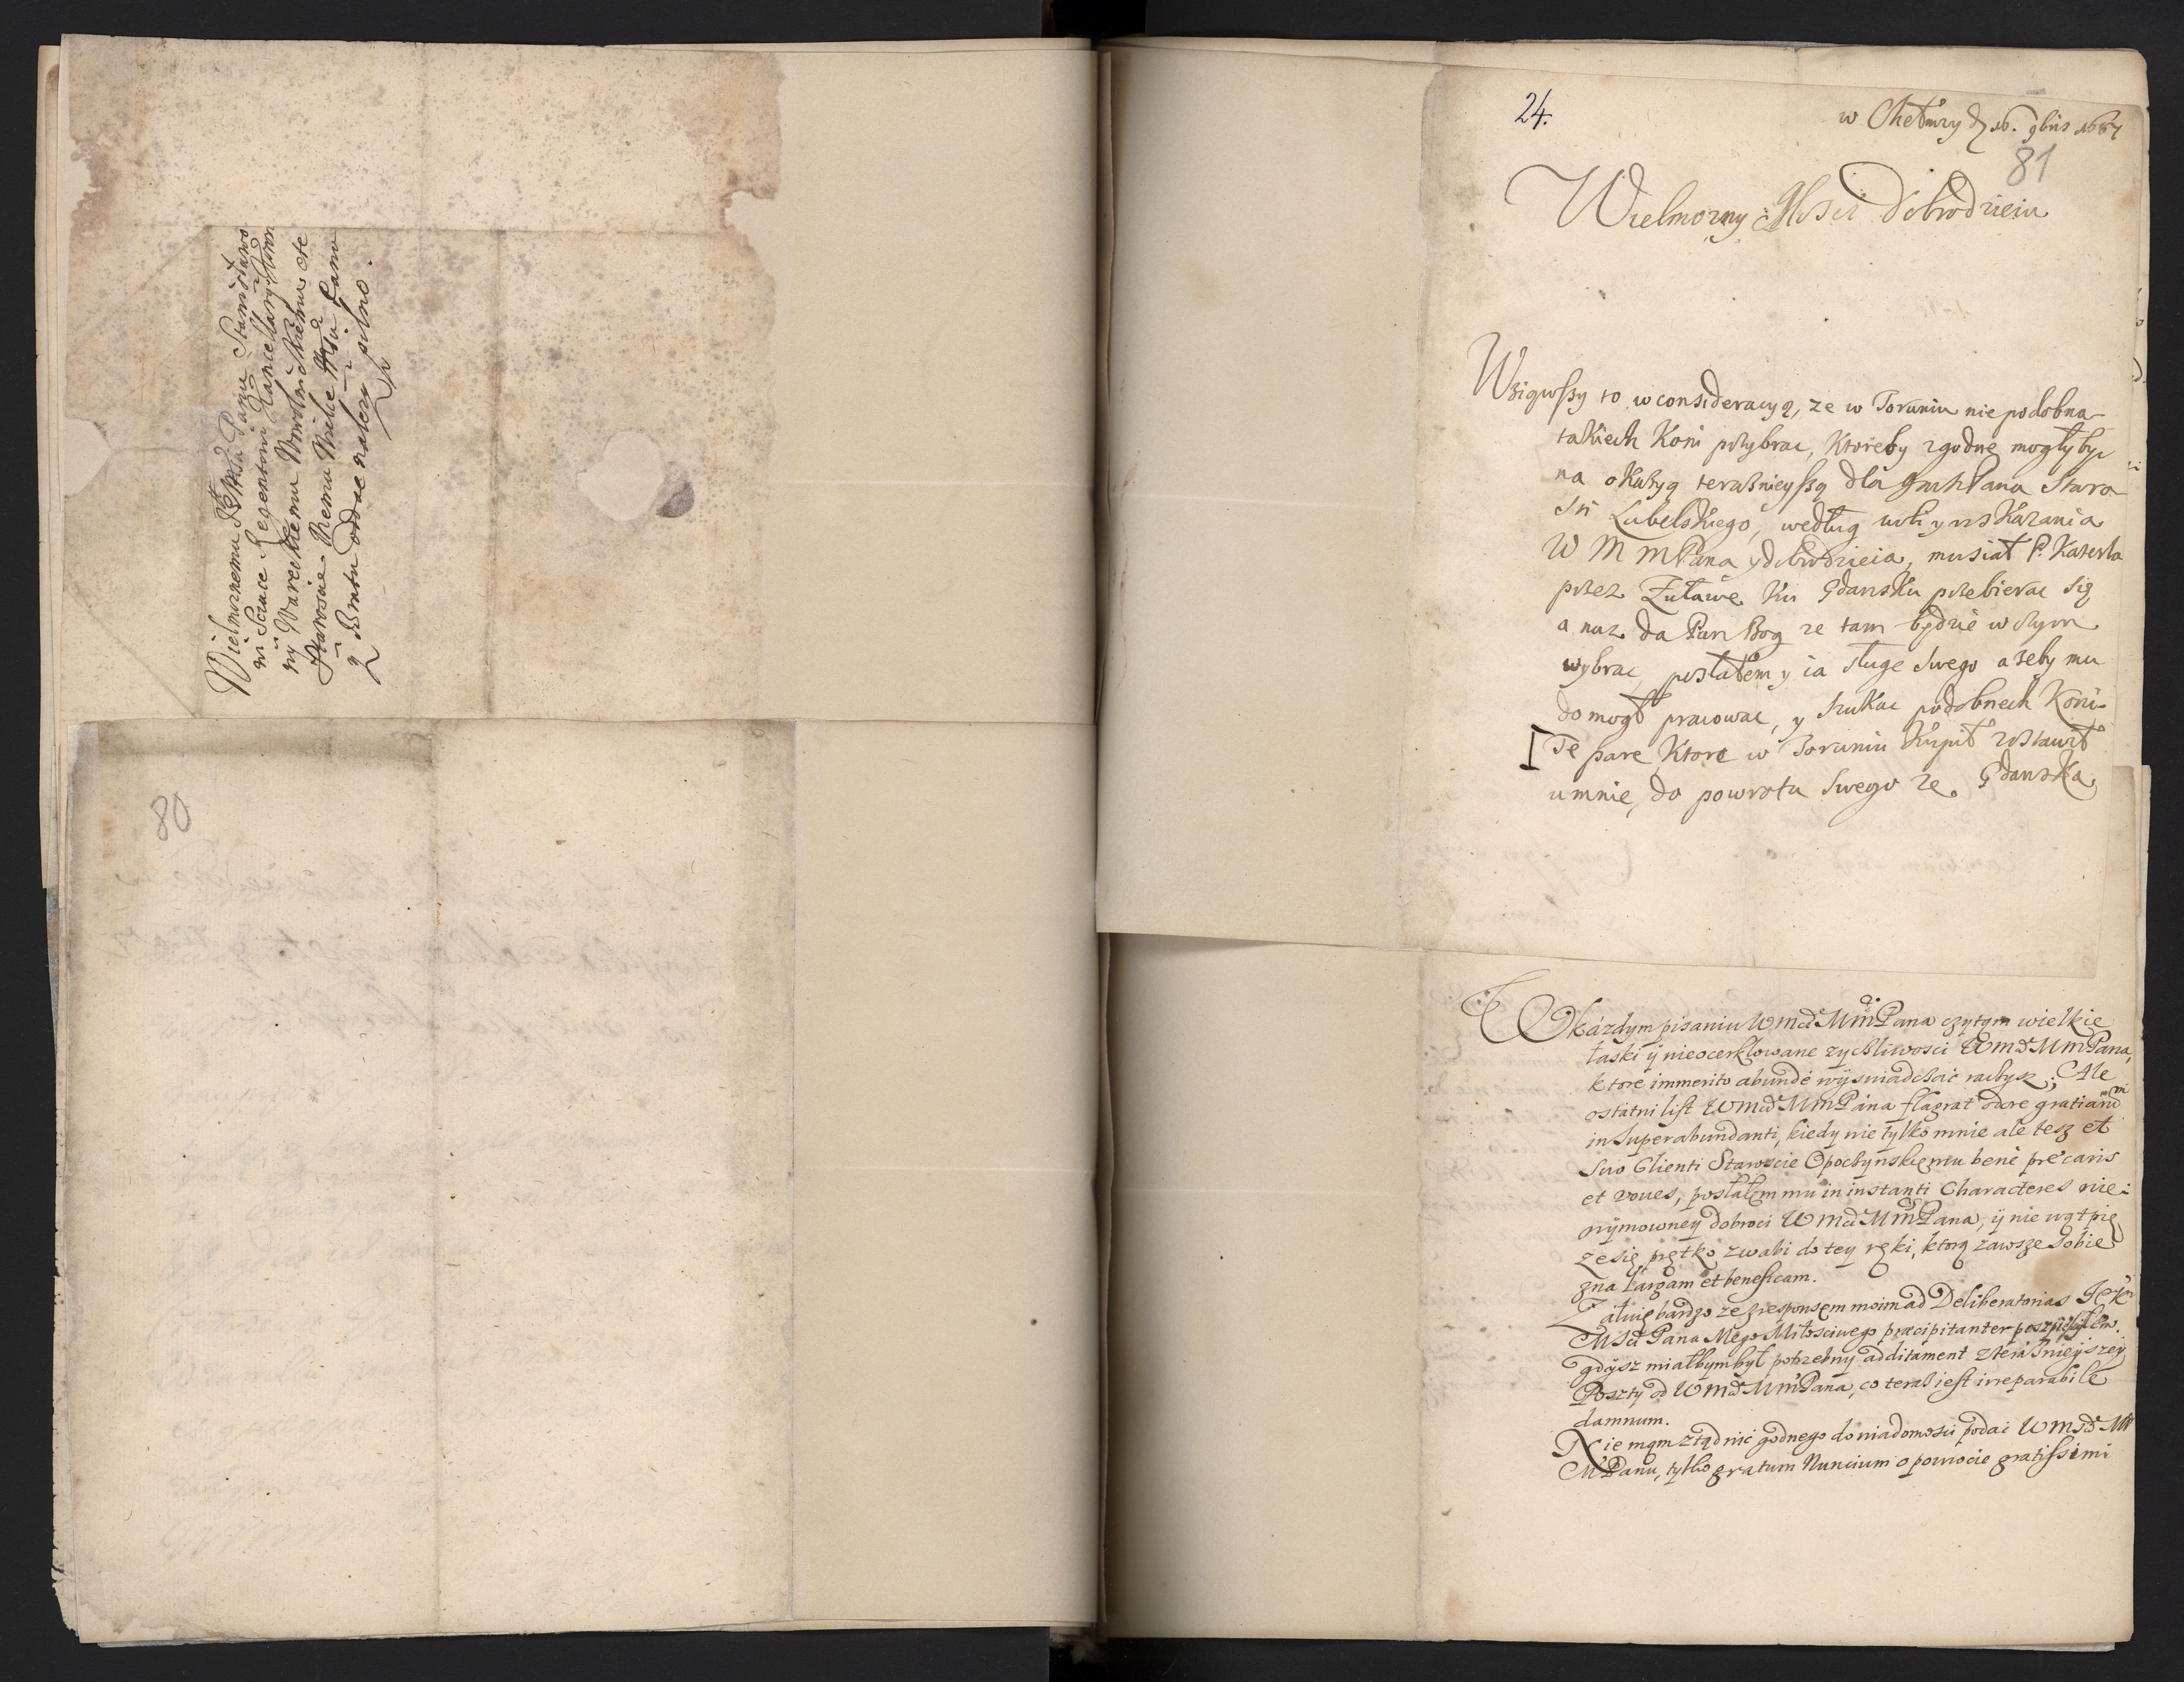 Wielmoznemu JMsci Panu Stanisławo
wi Szczuce Regentowi Kancelaryi Koron
ny Wareckiemu Wąwolnickiemu etc
Staroscie Memu Wielce Msci Panu
y Bratu oddac nalezy pilno.
80
24.
w Chełmzy d 16. 9bris 1687
81
Wielmozny Mosci Dobrodzieiu
Wziąwszy to w consideracyą, ze w Toruniu niepodobna
takiech Koni przybrac, Ktoreby zgodne mogły byc
na okazyą teraznieyszą dla Pana Staro
sti Lubelskiego, według woli y wskazania
W M MPana y dobrodzieia, musiał P.
przez Zuławe ku Gdansku przebierac się
a nuz da Pan Bog ze tam będzie w czym
wybrac, posłałem y ia sługe swego azeby mu
domogł pracowac, y szukac podobnech Koni
Te pare Ktore w Toruniu kupił zostawił
u mnie, do powrotu swego ze Gdanska
W Kázdym pisaniu WmćMmPana czytam wielkie
łaski ÿ nieocerklowane zychliwosci WmćMmPana,
ktore immerito abundè wyswiadchac raczysz; Ale
ostatni list WmćMmPána flagrat odore gratiarum
in superabundanti, kiedy nie tylko mnie ale tesz et
suo Clienti Staroscie Opoczynskiemu benè precaris
et voues, posłałem mu in instanti Characteres nie:
wymowney dobroci WmćMmPana, ÿ nie wątpię
ze się prętko zwabi do tey ręki, ktorą zawsze sobie
zna largam et beneficam.
Załuię bardzo ze z responsem moim ad Deliberatorias
Msci Pana Mego Miłosciwego præcipitanter pospieszyłem.
gdysz miałbym był potrzebny additament z teraznieyszey
Poszty od WmćMmPana, co teras iest irreparabile
damnum.
Nie mam ztąd nic godnego do wiadomosci podac WmSći MM
MPanu, tylko gratum Nuncium o powrocie gratissimi